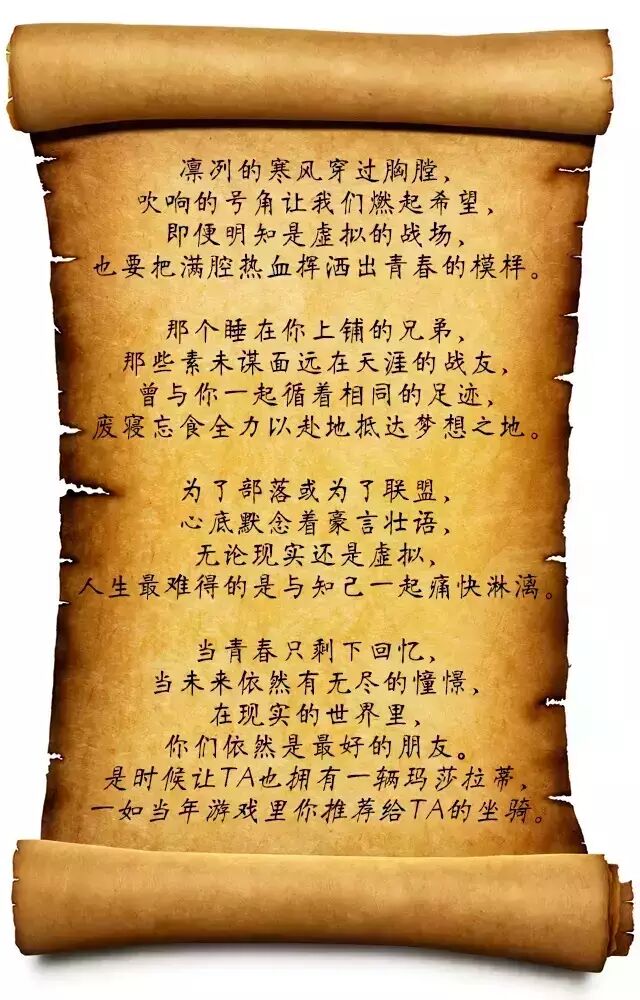 凛冽的寒风穿过胸膛，
吹响的号角让我们燃起希望，
即便明知是虚拟的战场，
也要把满腔热血挥洒出青春的模样。
那个睡在你上铺的兄弟，
那些素未谋面远在天涯的战友，
曾与你一起循着相同的足迹，
废寝忘食全力以赴地抵达梦想之地。
为了部落或为了联盟，
心底默念着豪言壮语，
无论现实还是虚拟，
人生最难得的是与知己一起痛快淋漓。
当青春只剩下回忆，
当未来依然有无尽的憧憬，
在现实的世界里，
你们依然是最好的朋友。
是时候让TA也拥有一辆玛莎拉蒂，
一如当年游戏里你推荐给TA的坐骑。